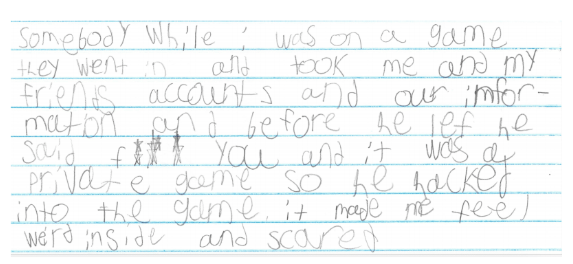 somebody While i was on a game
they went in and took me and my
friends accounts and our imfor-
mation and before he lef he
said f*** you and it was a
private game so he hacked
into the game. it made me feel
werd inside and scared